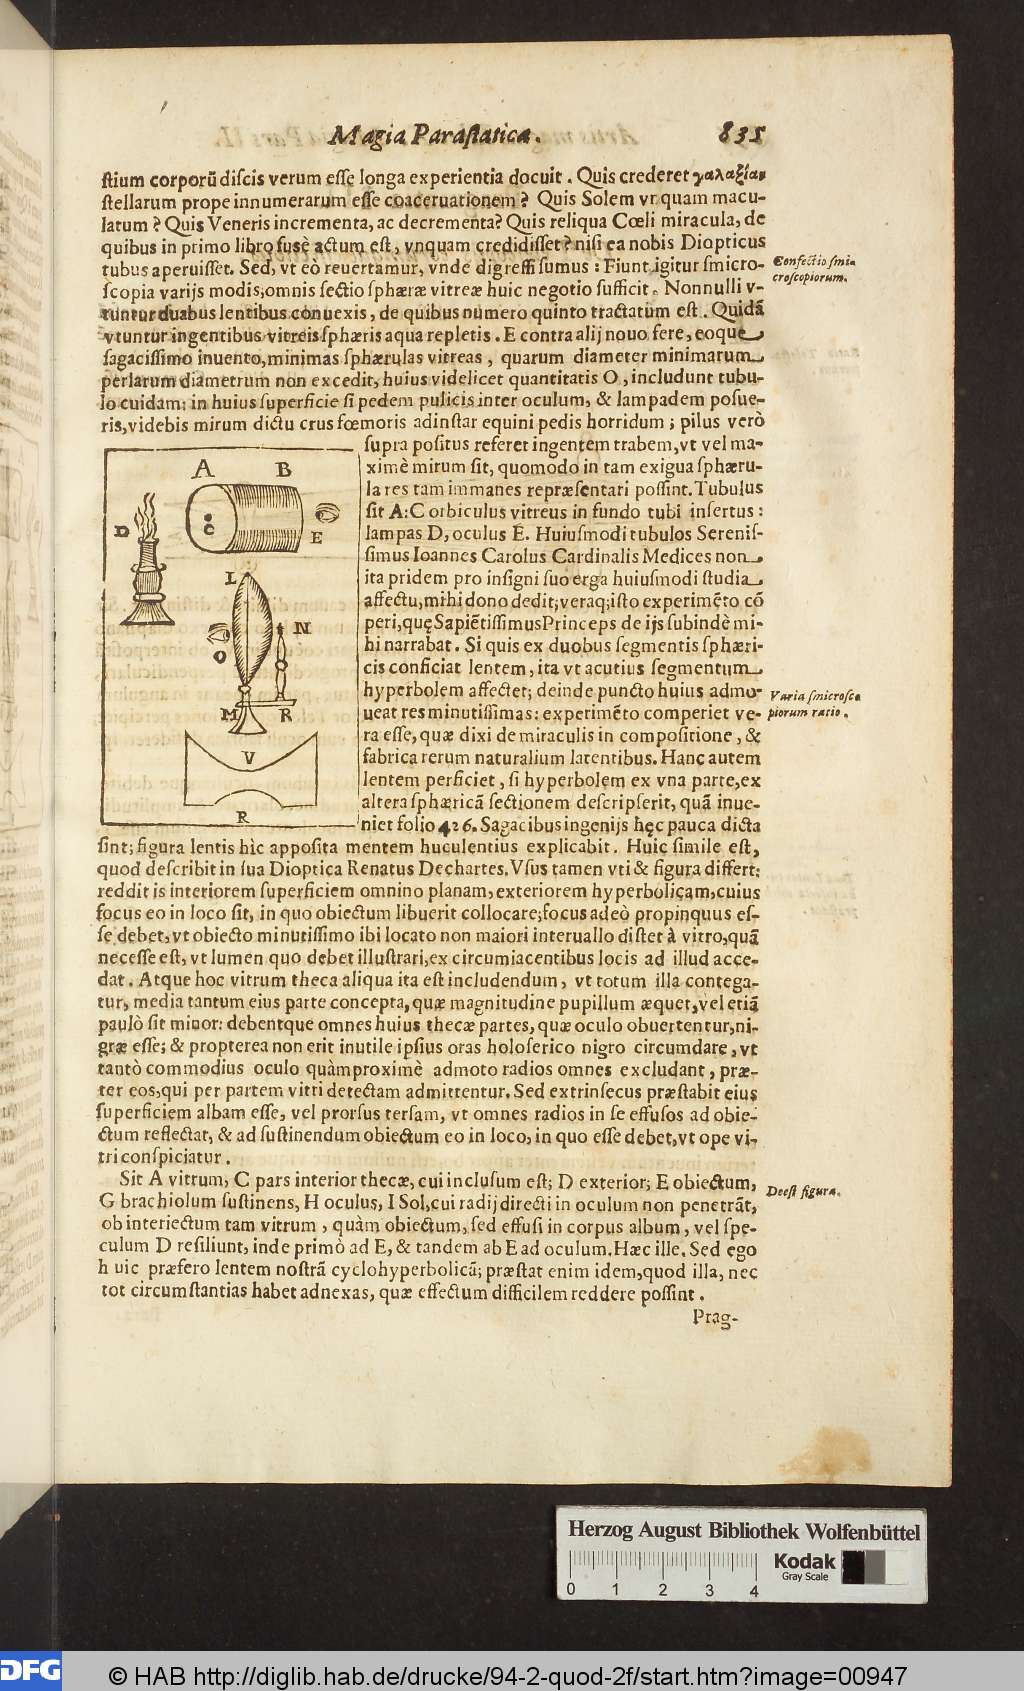 Magia Parastatica. 835
ſtium corporū diſcis verum eſſe longa experientia docuit. Quis crederet γαλαξίαν
ſtellarum prope innumerarum eſſe coaceruationem? Quis Solem vnquam macu-
latum? Quis Veneris incrementa, ac decrementa? Quis reliqua Cœli miracula, de
quibus in primo libro fusè actum eſt, vnquam credidiſſet? niſi ea nobis Diopticus
tubus aperuiſſet. Sed, vt eò reuertamur, vnde digreſſi ſumus: Fiunt igitur ſmicro-
Confectio ſmi-
croſcopiorum.
ſcopia varijs modis; omnis ſectio ſphæræ vitreæ huic negotio ſufficit. Nonnulli v-
tuntur duabus lentibus conuexis, de quibus numero quinto tractatum eſt. Quidā
vtuntur ingentibus vitreis ſphæris aqua repletis. E contra alij nouo fere, eoque
ſagaciſſimo inuento, minimas ſphærulas vitreas, quarum diameter minimarum
perlarum diametrum non excedit, huius videlicet quantitatis O, includunt tubu-
lo cuidam; in huius ſuperficie ſi pedem pulicis inter oculum, & lampadem poſue-
ris, videbis mirum dictu crus fœmoris adinſtar equini pedis horridum; pilus verò
ſupra poſitus referet ingentem trabem, vt vel ma-
ximè mirum ſit, quomodo in tam exigua ſphæru-
la res tam immanes repræſentari poſſint. Tubulus
ſit A: C orbiculus vitreus in fundo tubi inſertus:
lampas D, oculus E. Huiuſmodi tubulos Sereniſ-
ſimus Ioannes Carolus Cardinalis Medices non
ita pridem pro inſigni ſuo erga huiuſmodi ſtudia
affectu, mihi dono dedit; veraq; iſto experimēto cō
peri, quę Sapiētiſſimus Princeps de ijs ſubindè mi-
hi narrabat. Si quis ex duobus ſegmentis ſphæri-
cis conficiat lentem, ita vt acutius ſegmentum
hyperbolem affectet; deinde puncto huius admo-
Varia ſmicroſco
piorum ratio.
ueat res minutiſſimas: experimēto comperiet ve-
ra eſſe, quæ dixi de miraculis in compoſitione, &
fabrica rerum naturalium latentibus. Hanc autem
lentem perficiet, ſi hyperbolem ex vna parte, ex
altera ſphæricā ſectionem deſcripſerit, quā inue-
niet folio 426. Sagacibus ingenijs hęc pauca dicta
A B
D C E
L
N
O
M R
V
R
ſint; figura lentis hìc appoſita mentem huculentius explicabit. Huic ſimile eſt,
quod deſcribit in ſua Dioptica Renatus Dechartes. Vſus tamen vti & figura differt:
reddit is interiorem ſuperficiem omnino planam, exteriorem hyperbolicam, cuius
focus eo in loco ſit, in quo obiectum libuerit collocare; focus adeò propinquus eſ-
ſe debet, vt obiecto minutiſſimo ibi locato non maiori interuallo diſtet à vitro, quā
neceſſe eſt, vt lumen quo debet illuſtrari, ex circumiacentibus locis ad illud acce-
dat. Atque hoc vitrum theca aliqua ita eſt includendum, vt totum illa contega-
tur, media tantum eius parte concepta, quæ magnitudine pupillum æquet, vel etiā
paulò ſit minor: debentque omnes huius thecæ partes, quæ oculo obuertentur, ni-
græ eſſe; & propterea non erit inutile ipſius oras holoſerico nigro circumdare, vt
tantò commodius oculo quàm proximè admoto radios omnes excludant, præ-
ter eos, qui per partem vitri detectam admittentur. Sed extrinſecus præſtabit eius
ſuperficiem albam eſſe, vel prorſus terſam, vt omnes radios in ſe effuſos ad obie-
ctum reflectat, & ad ſuſtinendum obiectum eo in loco, in quo eſſe debet, vt ope vi-
tri conſpiciatur.
Sit A vitrum, C pars interior thecæ, cui incluſum eſt; D exterior; E obiectum,
Deeſt figura.
G brachiolum ſuſtinens, H oculus, I Sol, cui radij directi in oculum non penetrāt,
ob interiectum tam vitrum, quàm obiectum, ſed effuſi in corpus album, vel ſpe-
culum D reſiliunt, inde primò ad E, & tandem ab E ad oculum. Hæc ille. Sed ego
huic præfero lentem noſtrā cyclohyperbolicā; præſtat enim idem, quod illa, nec
tot circumſtantias habet adnexas, quæ effectum difficilem reddere poſſint.
Prag-
Herzog August Bibliothek Wolfenbüttel
Kodak
Gray Scale
0 1 2 3 4
DFG © HAB http://diglib.hab.de/drucke/94-2-quod-2f/start.htm?image=00947